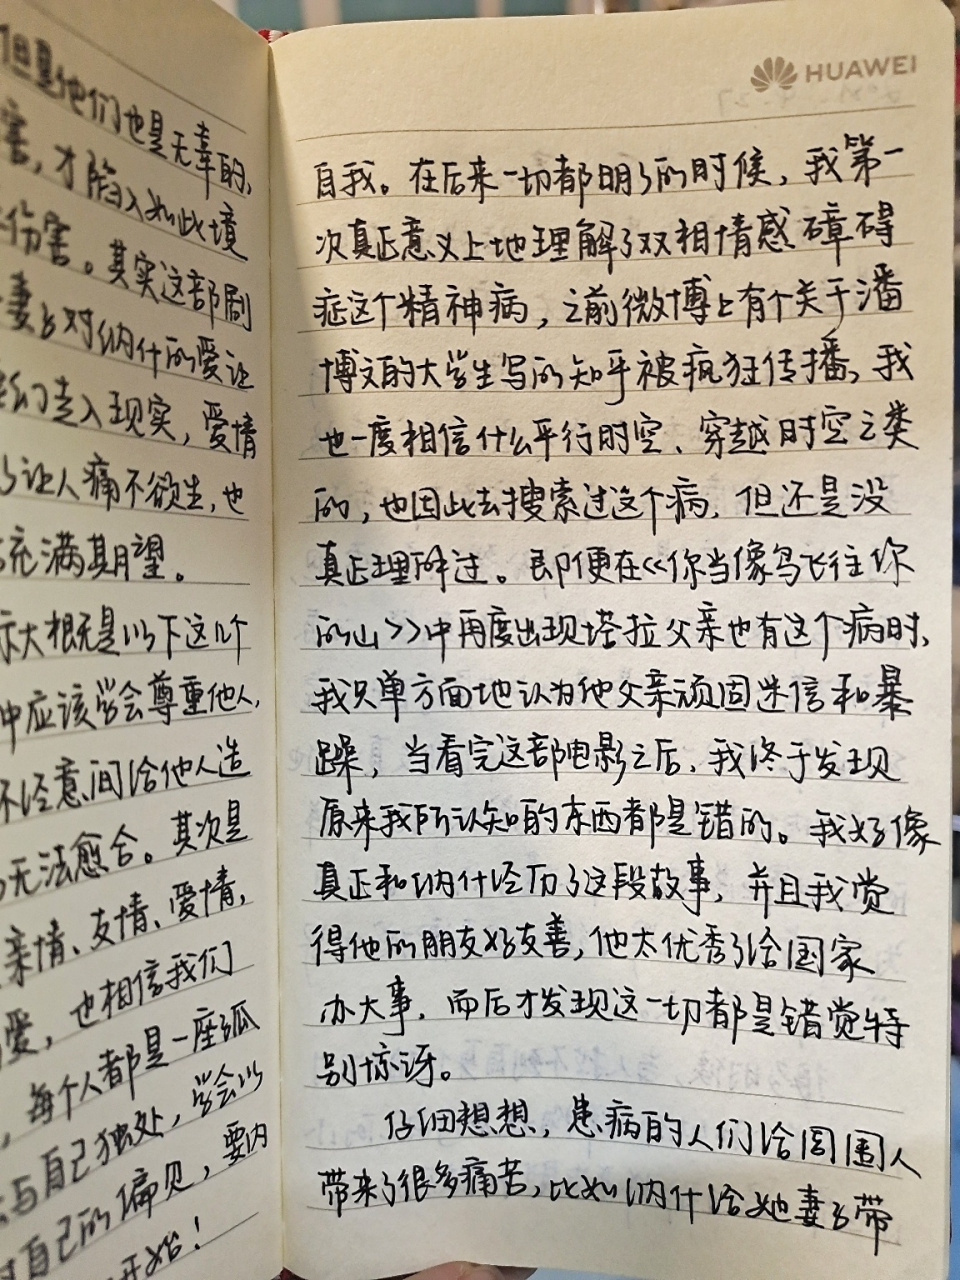 但是他们也是无辜的,
害,才陷入如此境
伤害。其实这部剧
妻子对纳什的爱让
幻走入现实,爱情
让人痛不欲生,也
充满期望。
大概是以下这几个
中应该学会尊重他人,
不经意间给他人造
无法愈合。其次是
亲情、友情、爱情,
爱,也相信我们
,每个人都是一座孤
与自己独处,学会以
自己的偏见,要内
开始!
HUAWEI
自我。在后来一切都明了的时候,我第一
次真正意义上地理解了双相情感障碍
症这个精神病,之前微博上有个关于潘
博文的大学生写的知乎被疯狂传播,我
也一度相信什么平行时空、穿越时空之类
的,也因此去搜索过这个病,但还是没
真正理解过。即便在<<你当像鸟飞往你
的山>>中再度出现塔拉父亲也有这个病时,
我只单方面地认为他父亲顽固迷信和暴
躁,当看完这部电影之后,我终于发现
原来我所认知的东西都是错的。我好像
真正和纳什经历了这段故事,并且我觉
得他的朋友好友善,他太优秀了给国家
办大事,而后才发现这一切都是错觉特
别惊讶。
仔细想想,患病的人们给周围人
带来了很多痛苦,比如纳什给她妻子带